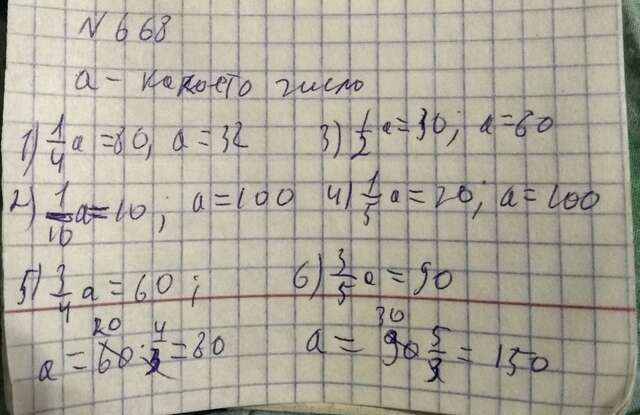 N 668
a - какоето число
1) 1/4 a = 80, a = 32 3) 1/2 a = 30; a = 60
2) 1/10 a = 10; a = 100 4) 1/5 a = 20; a = 100
5) 3/4 a = 60; 6) 3/5 a = 90
20 4 30
a = 60 · 4/3 = 80 a = 90 5/3 = 150